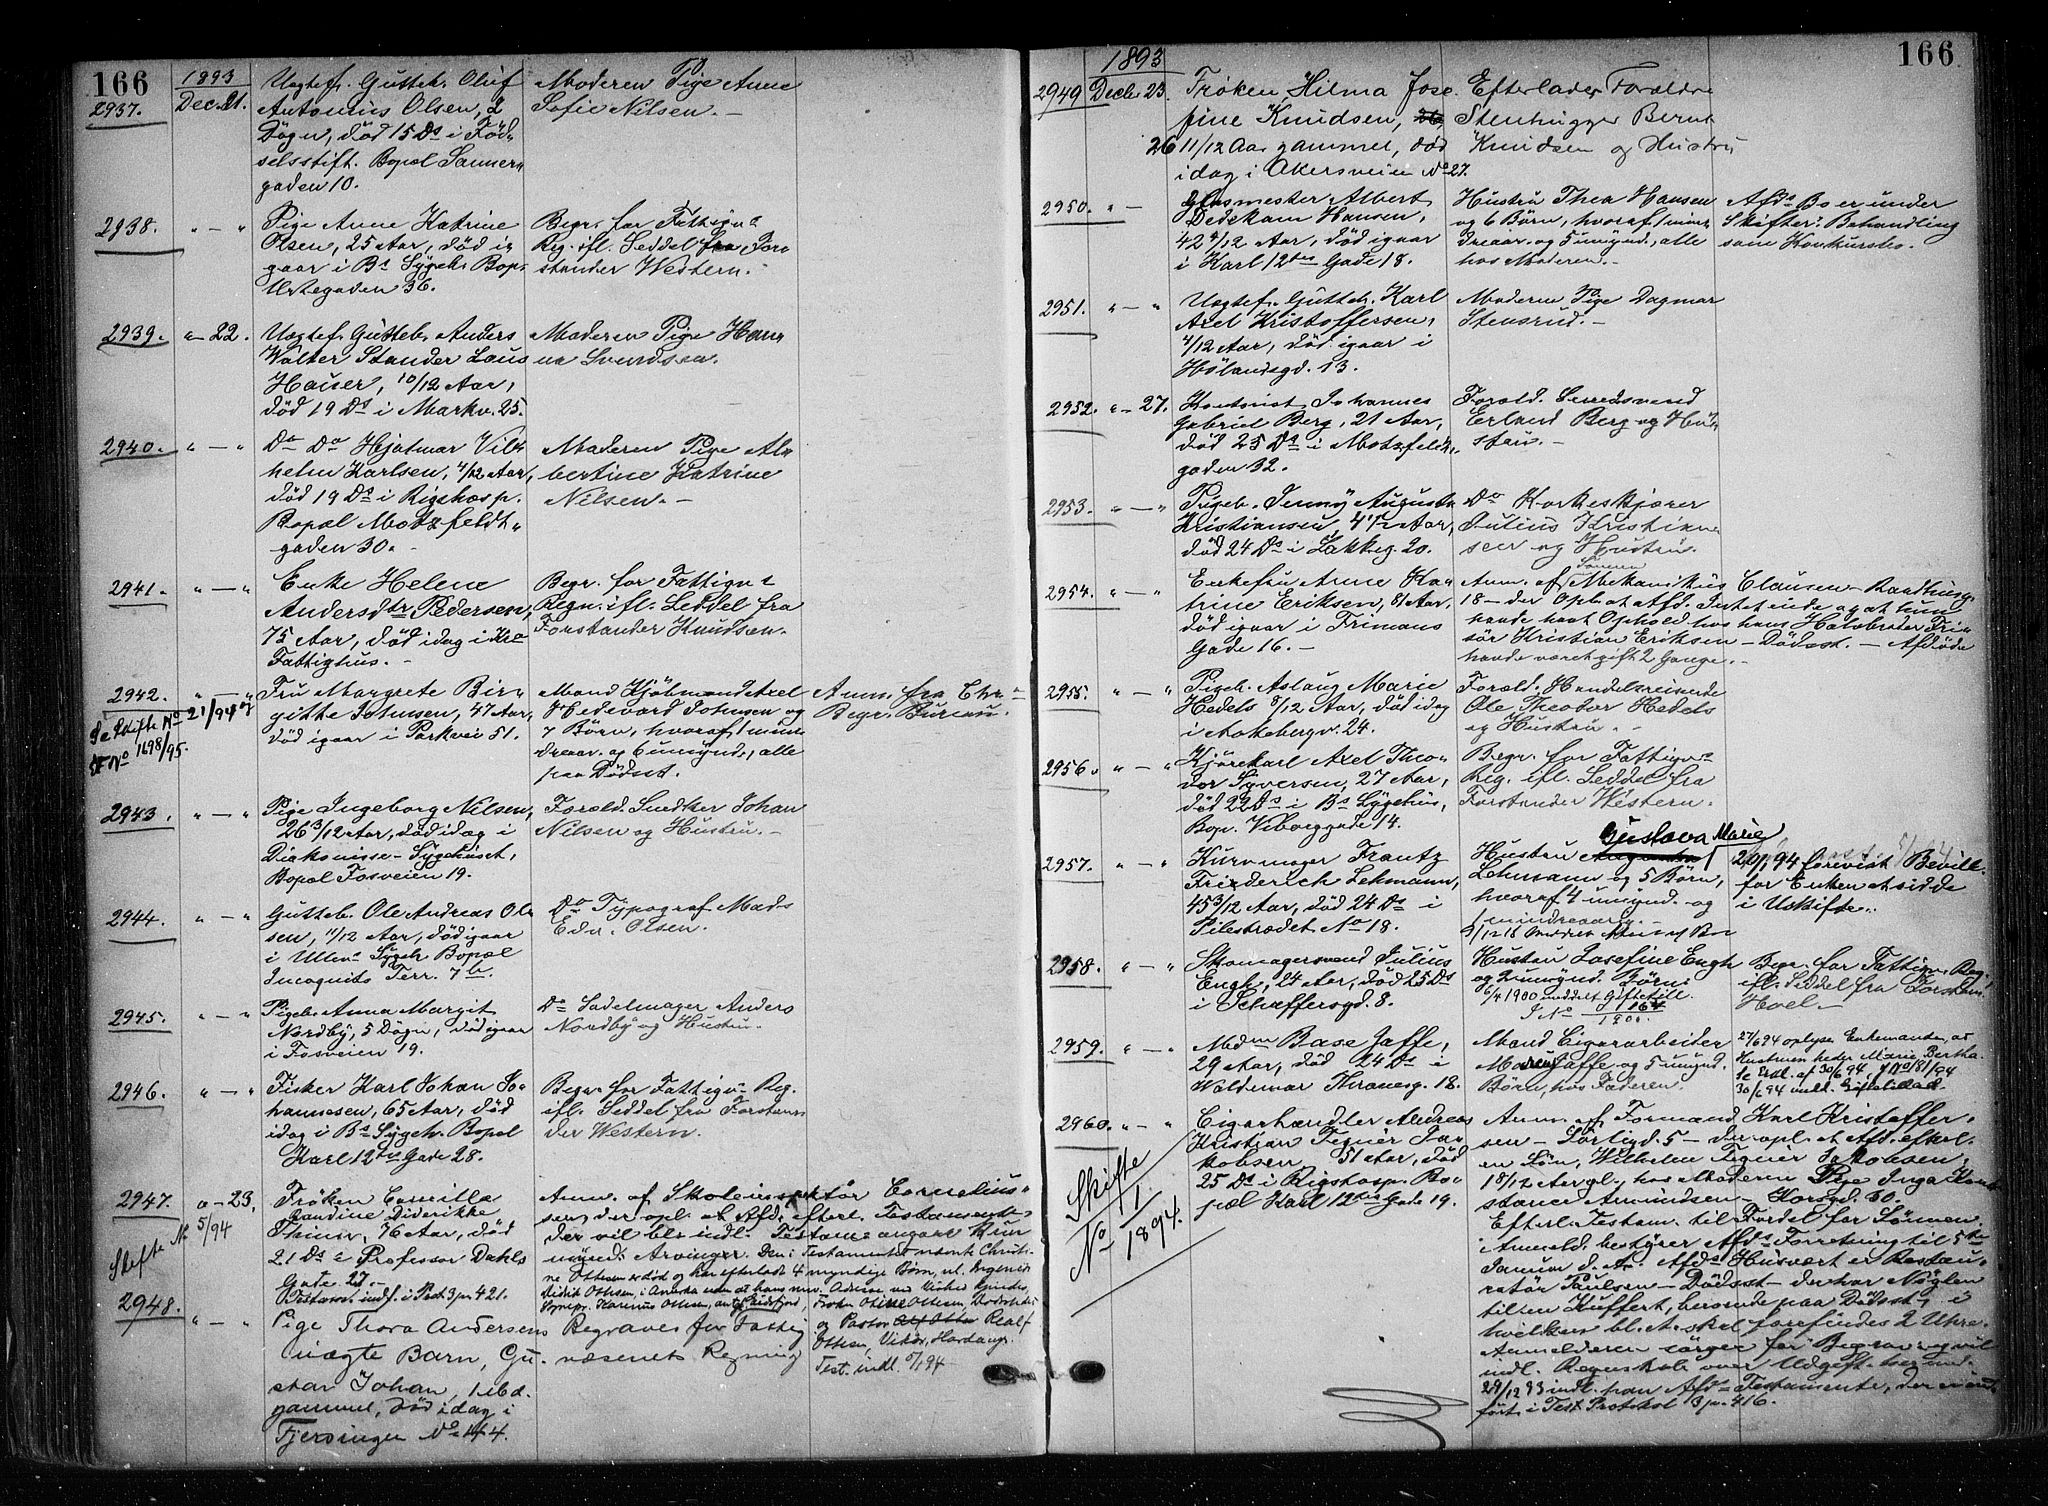 166
1893
2937.
Dec. 21.
Uegtef. Gutteb. Oluf
Antonius Olsen, 2
Døgn, død 15 Ds i Fød-
selsstift. Bopæl Sanner-
gaden 10.
Moderen Pige Anne
Sofie Nilsen. –
2938.
" — "
Pige Anne Katrine
Olsen, 25 Aar, død i
gaar i Bs Sygeh. Bop.
Urtegaden 36.
Begr. for Fattigv.s
Reg. ifl. Seddel fra For-
stander Western. –
2939.
" – 22.
Uegtef. Gutteb. Anders
Walter Stander Laus
Hauser, 10/12 Aar,
død 19 Ds i Markv. 25.
Moderen Pige Han-
na Svendsen.
2940.
" — "
Do Do Hjalmar Vil-
helm Karlsen, 4/12 Aar,
død 19 Ds i Rigshosp.
Bopæl Motzfeldt-
gaden 30. –
Moderen Pige Al-
bertine Katrine
Nilsen. –
2941.
" — "
Enke Helene
Andersdtr. Pedersen,
75 Aar, død idag i Kra
Fattighus. –
Begr. for Fattigv.s
Regn. ifl. Seddel fra
Forstander Knudsen.
2942.
" — "
Se Skifte No 21/94 og
SF No 1698/95.
Fru Margrete Bir-
gitte Johnsen, 47 Aar,
død igaar i Parkvei 51.
Mand Kjøbmand Axel
Hedevard Johnsen og
7 Børn, hvoraf 1 min-
dreaar. og 6 umynd., alle
paa Dødsst.
Anm. fra Chr.a
Begr. Bureau.
2943.
" — "
Pige Ingeborg Nilsen,
26 3/12 Aar, død idag i
Diakonisse-Sygehuset,
Bopæl Fosveien 19.
Foræld. Snedker Johan
Nilsen og Hustru. –
2944.
" — "
Gutteb. Ole Andreas Ol-
sen, 11/12 Aar, død igaar
i Ullev. Sygeh. Bopæl
Incognito Terr. 7b.
Do Typograf Mads
Edv. Olsen.
2945.
" — "
Pigeb. Anna Margit
Nordby, 5 Døgn, død igaar
i Fosveien 19.
Do Sadelmager Anders
Nordby og Hustru.
2946.
" — "
Fisker Karl Johan Jo-
hannesen, 65 Aar, død
idag i Bs Sygeh. Bopæl
Karl 12tes Gade 28.
Begr. for Fattigv.s Reg.
ifl. Seddel fra Forstan-
der Western.
2947.
" – 23.
Skifte No 5/94
Frøken Camilla
Candine Diderikke
Thinn, 76 Aar, død
21 Ds i Professor Dahls
Gade 27. –
Testam. indf. i Prot 3 p. 421.
Anm. af Skoleinspektør Cornelius-
sen, der opl. at Afd. efterl. Testamente,
der vil bli indl. Testam. angaar kun
mynd. Arvinger. Den i Testamentet nævnte Christi-
ne Ottesen er død og har efterladt 4 myndige Børn, nl. Ingeniør
Didrik Ottesen, i Amerika uden at hans nuv. Adresse med Vished kjendes,
Sogneprest Karenus Ottesen, antg. Eidsfjord, Frøken Oline Ottesen, Dødsstedet
og Pastor Realf
Ottesen, Vikør, Hardanger.
Test. indl. 5/1 94
2948.
" — "
Pige Thora Andersens
uægte Barn, Gu-
stav Johan, 1 Md.
gammel, død idag i
Fjerdingen No 44.
Begraves for Fattig-
væsenets Regning
166
1893
2949
Decbr 23.
Frøken Hilma Jose-
fine Knudsen,
26 11/12 Aar gammel, død
idag i Akersveien No 27.
Efterlader Forældre
Stenhugger Bernt
Knudsen og Hustru
2950.
" —
Glasmester Albert
Dedekam Hansen,
42 4/12 Aar, død igaar
i Karl 12tes Gade 18.
Hustru Thea Hansen
og 6 Børn, hvoraf 1 min-
dreaar. og 5 umynd., alle
hos Moderen. –
Afds Bo er under
Skifter. Behandling
som Konkursbo.
2951.
" — "
Uegtef. Gutteb. Karl
Axel Kristoffersen,
4/12 Aar, død igaar i
Hølandsgd. 13.
Moderen Pige Dagmar
Stensrud. –
2952.
" – 27.
Kontorist Johannes
Gabriel Berg, 21 Aar,
død 25 Ds i Motzfeldt-
gaden 32.
Foræld. Smedsvend
Erland Berg og Hu-
stru. –
2953.
" — "
Pigeb. Jenny Augusta
Kristiansen, 4 1/2 Aar,
død 24 Ds i Lakkeg. 20.
Do Korkeskjærer
Julius Kristian-
sen og Hustru.
2954.
" — "
Enkefru Anne Ka-
trine Eriksen, 81 Aar,
død igaar i Frimans
Gade 16. –
Anm. af Mekanikus Clausen – Rosthusg.
18 – der opl. at Afd. Intet eiede og at hun
havde havt Ophold hos hans Halvbroder Fri-
sør Kristian Eriksen – Dødsst. – Afdøde
havde været gift 2 Gange. –
2955.
" — "
Pigeb. Aslaug Marie
Hedels 8/12 Aar, død idag
i Aakebergv. 24.
Foræld. Handelsreisende
Ole Theodor Hedels
og Hustru. –
2956.
" — "
Kjørekarl Axel Theo-
dor Syversen, 27 Aar,
død 22 Ds i Bs Sygehus,
Bop. Viborggade 14.
Begr. for Fattigv.s
Reg. ifl. Seddel fra
Forstander Western.
2957.
" — "
Kurvmager Frantz
Friederich Lehmann,
45 3/12 Aar, død 24 Ds i
Pilestrædet No 18.
Gustava Marie
Hustru
Lehmann og 5 Børn,
hvoraf 4 umynd. og
1 mindreaarig. –
2/1 94 forevist Bevill.
for Enken at sidde
i Uskifte.
2958.
" — "
Skomagersvend Julius
Engh, 24 Aar, død 25 Ds
i Schæffersgd. 8.
Hustru Josefine Engh
og 2 umynd. Børn.
6/4 1900 meddelt Giftetill.
S No 1164/1900.
Begr. for Fattigv.s Reg.
ifl. Seddel fra Forstan.
Hoel –
2959.
" — "
Mdm Base Jaffe,
29 Aar, død 24 Ds i
Waldemar Thranesg. 18.
Mand Cigararbeider
Marcus Jaffe og 5 umynd.
Børn, hos Faderen.
27/6 94 oplyser Enkemanden, at
Hustruen hedte Marie Bertha.
Se Erkl. af 30/6 94, J No 181/94
30/6 94 medd. Giftetillad.
2960.
" — "
Skifte
No 1/1894.
Cigarhandler Andreas
Kristian Tegner Ja-
kobsen, 51 Aar, død
25 Ds i Rigshosp. Bo-
pæl Karl 12tes Gade 19.
Anm. af Formand Karl Kristoffer-
sen – Sørligd. 5 – der opl. at Afd. efterl.
en Søn, Wilhelm Tegner Jakobsen,
15/12 Aar gl., hos Moderen Pige Inga Kon-
stance Amundsen – Korsgd. 60.
Efterl. Testam. til Fordel for Sønnen.
Anmeld. bestyrer Afds Forretning til 5te
Januar d. A. Afds Husvært er Restau-
ratør Paulsen – Dødsst. – der har Nøglen
til en Kuffert, beroende paa Dødsst., i
hvilken bl. A. skal forefindes 2 Uhre.
Anmelderen sørger for Begrav. og vil
indl. Regnskab over Udgift. hermed.
29/12 93 indl. han Afds Testamente, der er ind-
ført i Test. Protokol 3 p. 416.